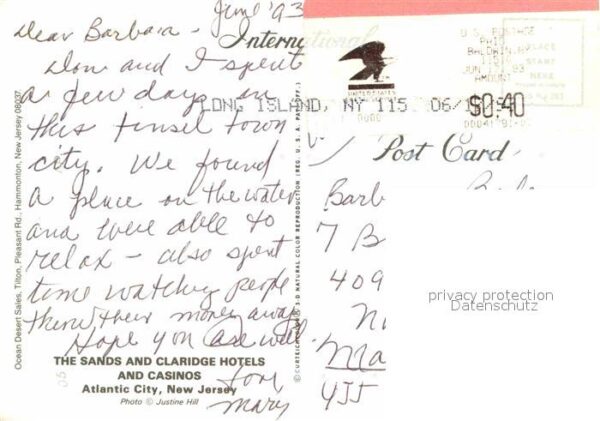 June '93
Dear Barbara -
Don and I spent
a few days in
this tinsel town
city. We found
a place on the water
and were able to
relax - also spent
time watching people
throw their money away
Hope you are well
Love
Mary
THE SANDS AND CLARIDGE HOTELS
AND CASINOS
Atlantic City, New Jersey
Photo © Justine Hill
Ocean Desert Sales, Tilton, Pleasant Rd., Hammonton, New Jersey 08037
International
Post Card
U.S. POSTAGE
PAID
BALDWIN, NY
JUN
93
AMOUNT
$0.40
UNITED STATES
LONG ISLAND, NY 115 06/1
PLACE
START
HERE
3-D NATURAL COLOR REPRODUCTION (REG. U.S.A. PAT. OFF.)
Barb
7 B
409
Ma
YJJ
privacy protection
Datenschutz